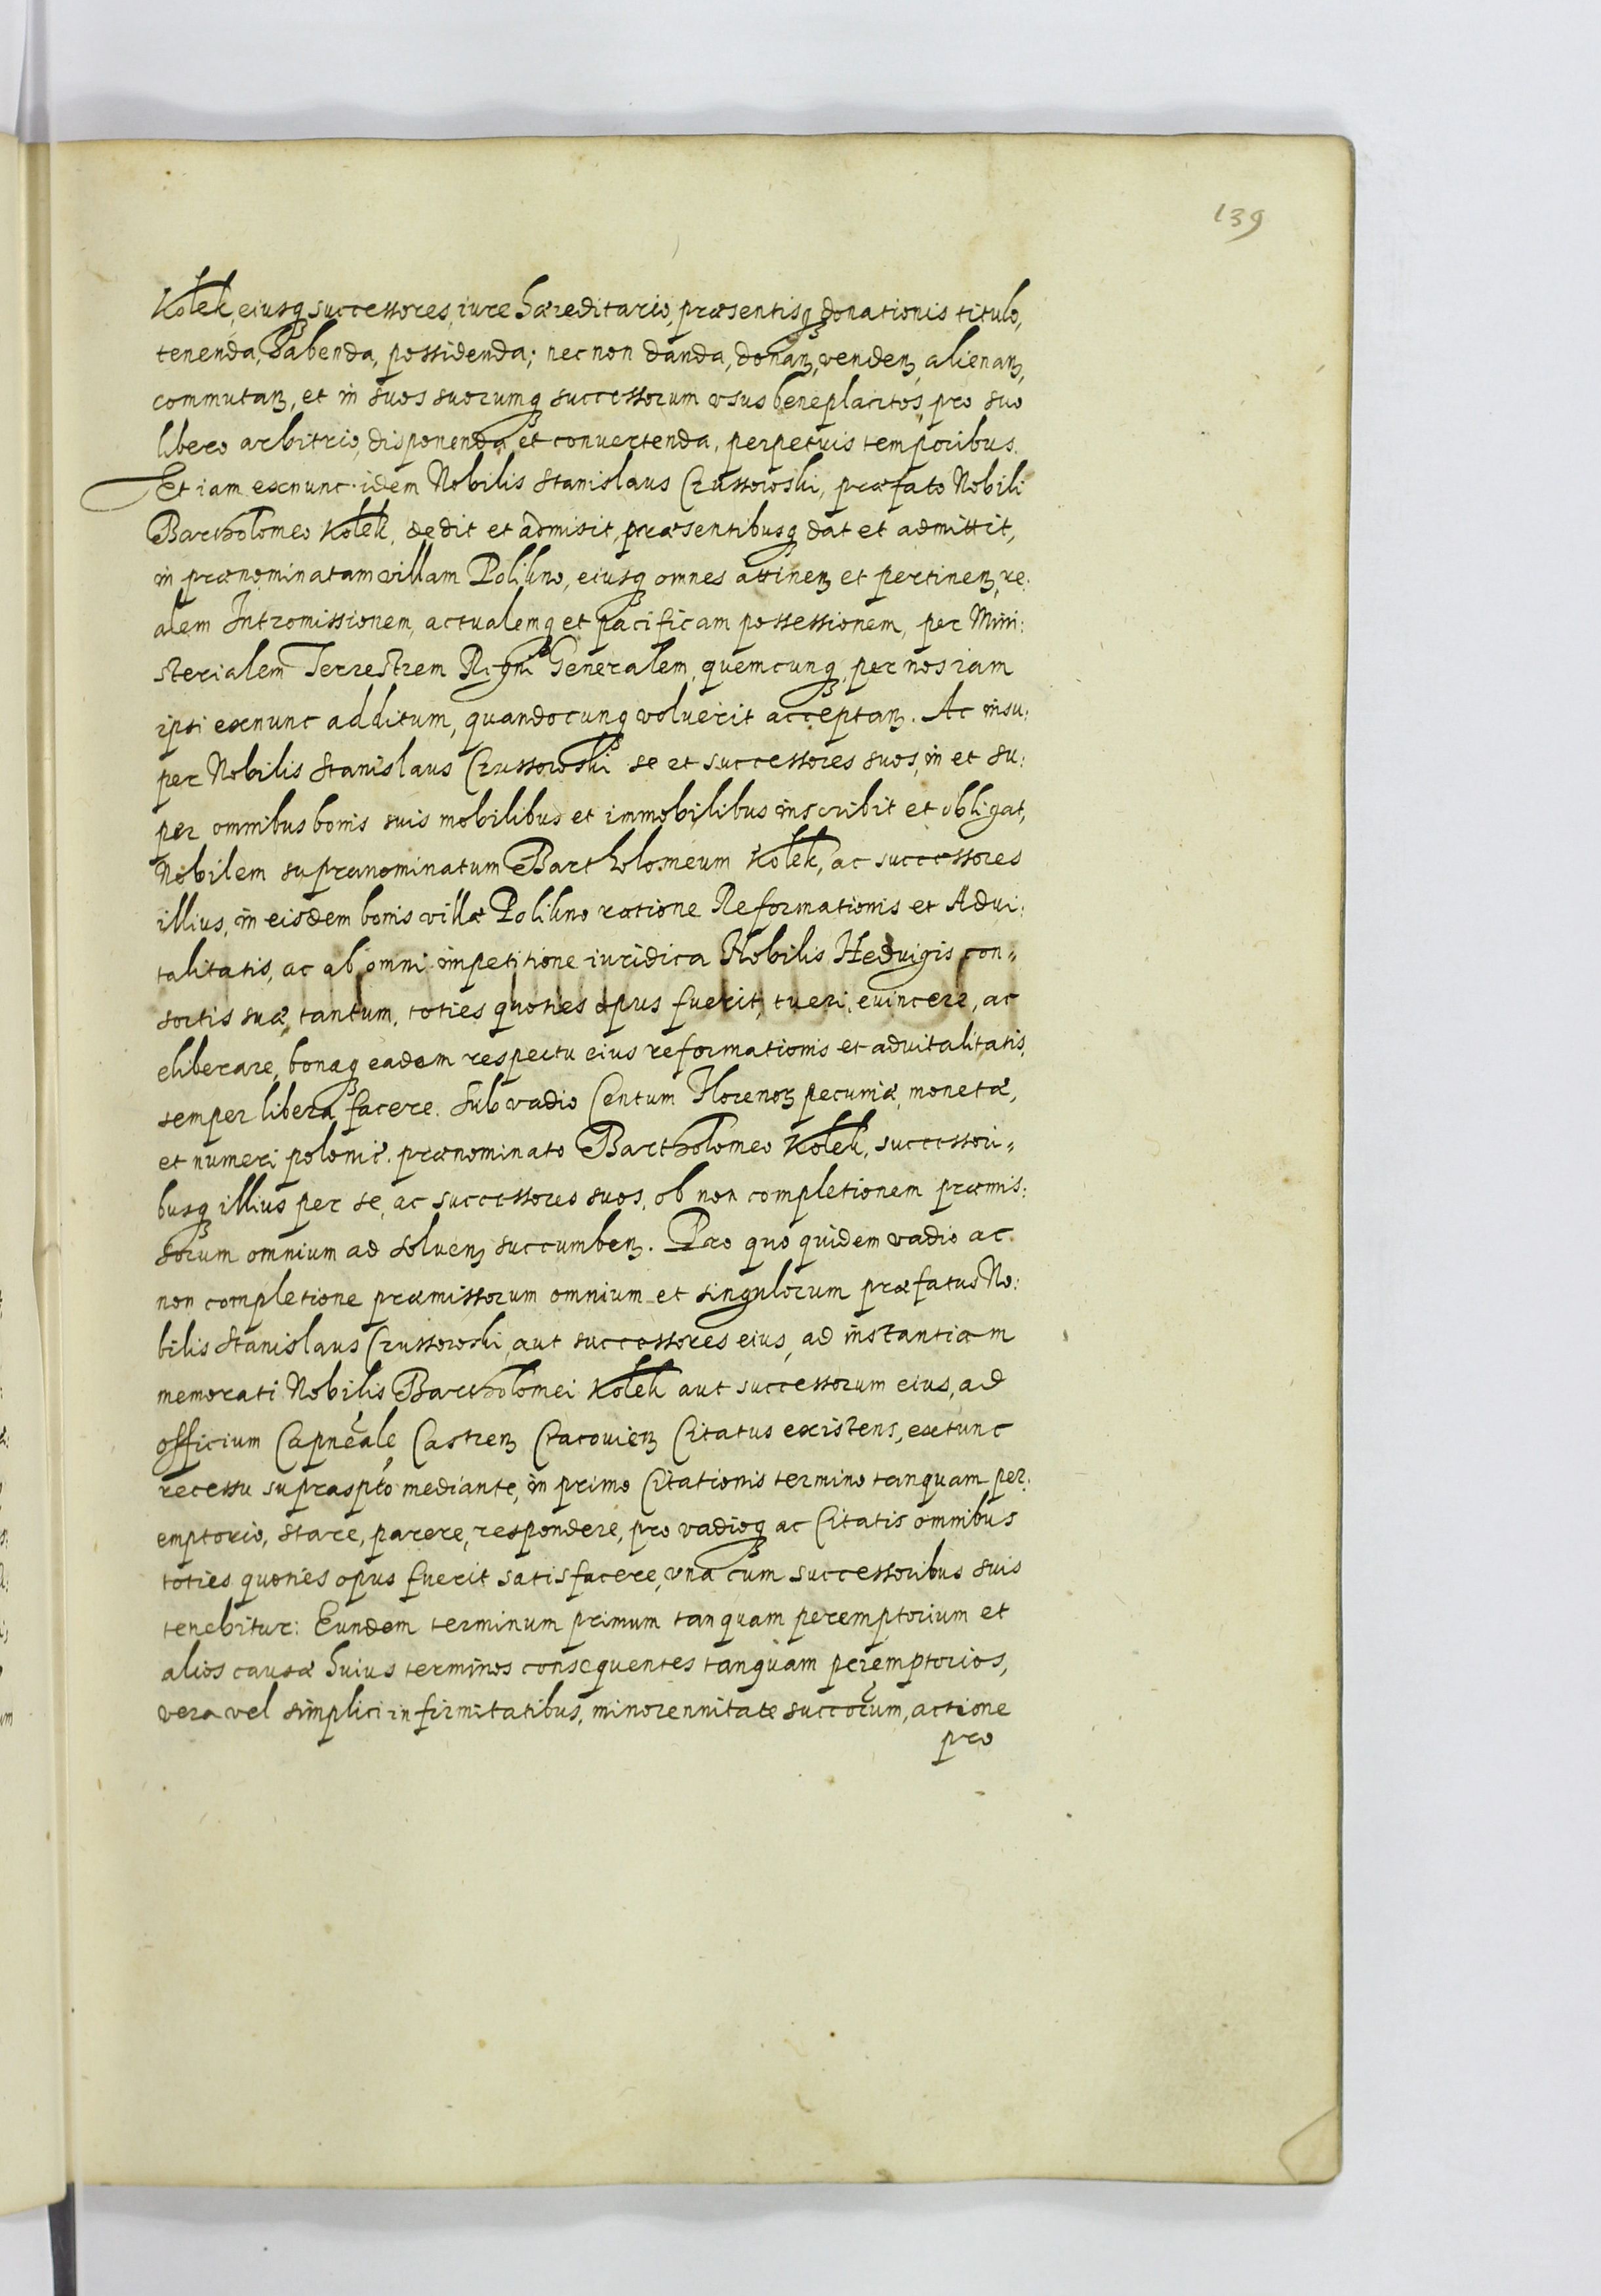 139
Kołek, eiusq3 successores, iure hæreditario, præsentisq3 donationis titulo,
tenenda, habenda, possidenda; nec non danda, donan3, venden3, alienan3,
commutan3, et in suos suorumq3 successorum vsus beneplacitos, pro suo
libero arbitrio, disponenda et conuertenda, perpetuis temporibus.
Et iam exnunc idem Nobilis Stanislaus Czussowski, præfato Nobili
Bartholomeo Kołek, dedit et admisit, præsentibusq3 dat et admittit,
in prænominatam villam Polikno, eiusq3 omnes attinen3 et pertinen3, re:
alem Intromissionem, actualemq3 et pacificam possessionem, per Mini:
sterialem Terrestrem Regni Generalem, quemcunq3, per nos iam
ipsi exnunc additum, quandocunq3 voluerit acceptan3. Ac insu:
per Nobilis Stanislaus Czussowski se et successores suos, in et su:
per omnibus bonis suis mobilibus et immobilibus inscribit et obligat,
Nobilem supranominatum Bartholomeum Kołek, ac successores
illius, in eisdem bonis villæ Polikno ratione Reformationis et Advi:
talitatis, ac ab omni impetitione iuridica Nobilis Hedvigis con=
sortis suæ, tantum, toties quoties opus fuerit, tueri, euincere, ac
eliberare, bonaq3 eadem respectu eius reformationis et advitalitatis,
semper libera facere. Sub vadio Centum Floreno3 pecuniæ, monetæ,
et numeri polonic. prænominato Bartholomeo Kołek, successori=
busq3 illius per se, ac successores suos, ob non completionem præmis:
sorum omnium ad soluen3 succumben3. Pro quo quidem vadio ac
non completione præmissorum omnium et singulorum præfatus No:
bilis Stanislaus Czussowski, aut successores eius, ad instantiam
memorati Nobilis Bartholomei Kołek aut successorum eius, ad
officium Capneale, Castren3 Cracouien3 Citatus existens, extunc
recessu suprasptô mediante, in primo Citationis termino tanquam per:
emptorio, stare, parere, respondere, pro vadioq3 ac Citatis omnibus
toties quoties opus fuerit satisfacere, vna cum successoribus suis
tenebitur: Eundem terminum primum tanquam peremptorium et
alios causæ huius terminos consequentes tanquam peremptorios,
vera vel simplici infirmitatibus, minorennitate succorum, actione
pro